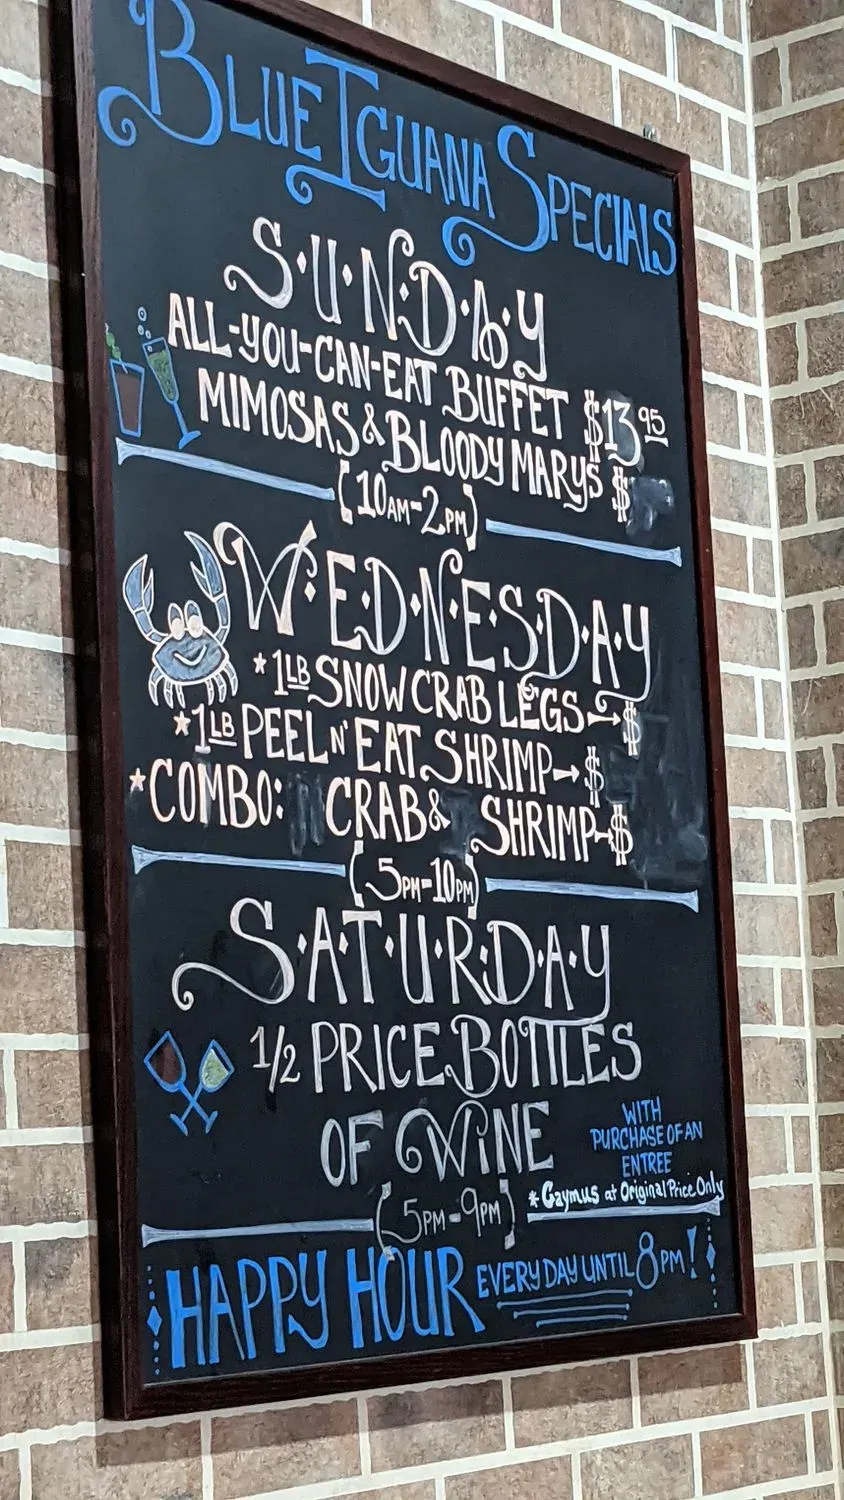 BLUE IGUANA SPECIALS
S·U·N·D·A·Y
ALL-YOU-CAN-EAT BUFFET $13.95
MIMOSAS & BLOODY MARYS $
(10AM-2PM)
W·E·D·N·E·S·D·A·Y
*1LB SNOW CRAB LEGS→$
*1LB PEEL N' EAT SHRIMP→$
*COMBO: CRAB & SHRIMP→$
(5PM-10PM)
S·A·T·U·R·D·A·Y
1/2 PRICE BOTTLES
OF WINE
WITH
PURCHASE OF AN
ENTREE
*Caymus at Original Price Only
(5PM-9PM)
HAPPY HOUR EVERY DAY UNTIL 8PM!